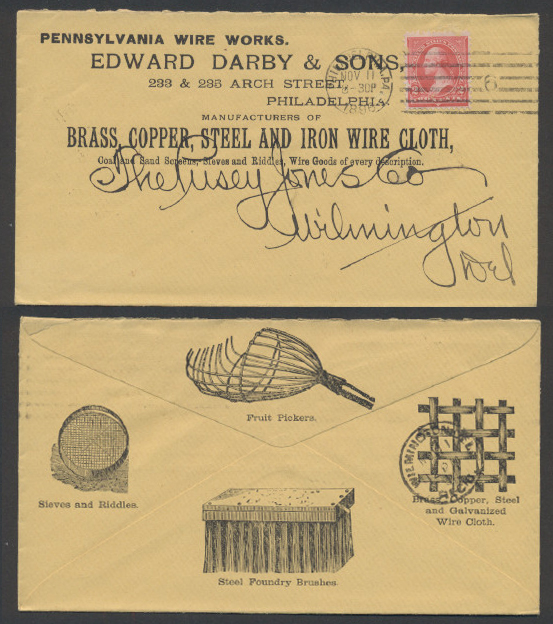 PENNSYLVANIA WIRE WORKS.
EDWARD DARBY & SONS,
233 & 235 ARCH STREET,
PHILADELPHIA.
MANUFACTURERS OF
BRASS, COPPER, STEEL AND IRON WIRE CLOTH,
Coal and Sand Screens, Sieves and Riddles, Wire Goods of every description.
PHILADELPHIA, PA.
NOV 11
30P
1896
6
The Pusey Jones Co
Wilmington
Del
Fruit Pickers.
Sieves and Riddles.
WILMINGTON, DEL.
REC'D
Brass, Copper, Steel
and Galvanized
Wire Cloth.
Steel Foundry Brushes.